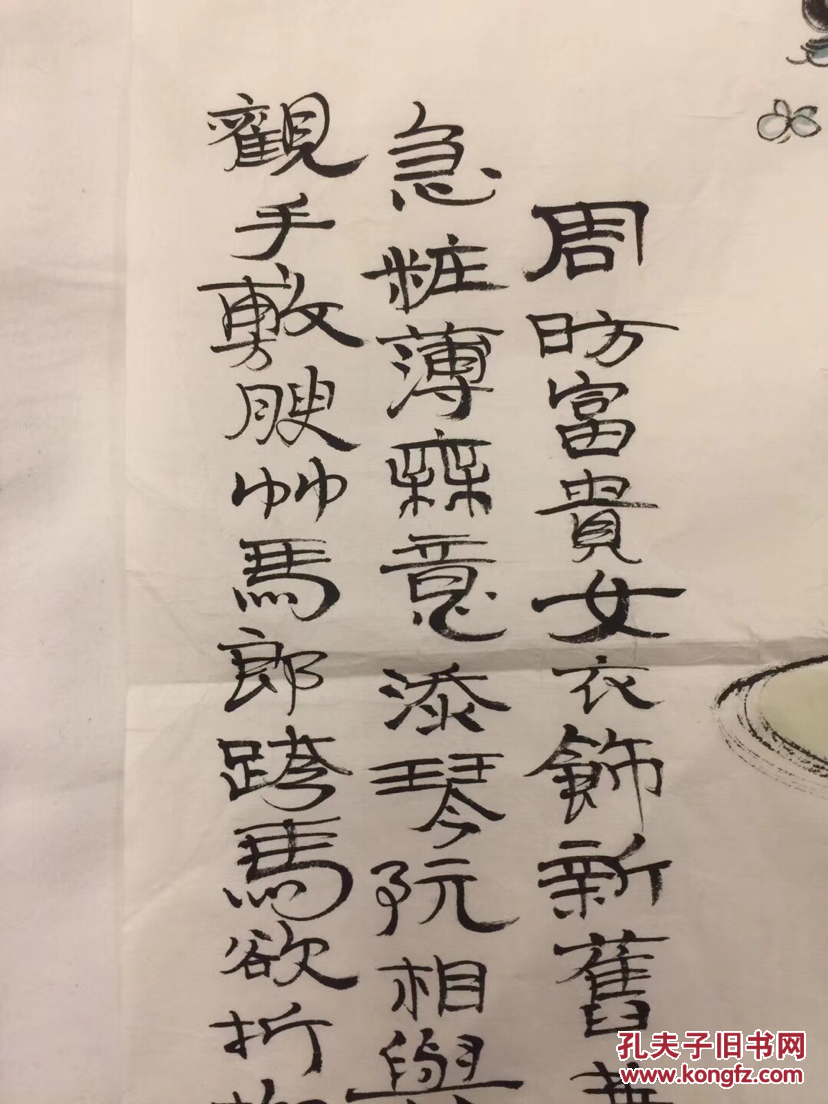 周昉富貴女衣飾新舊
急粧薄無意添琴阮相與
觀手敷腴竹馬郎跨馬欲折
孔夫子旧书网
www.kongfz.com